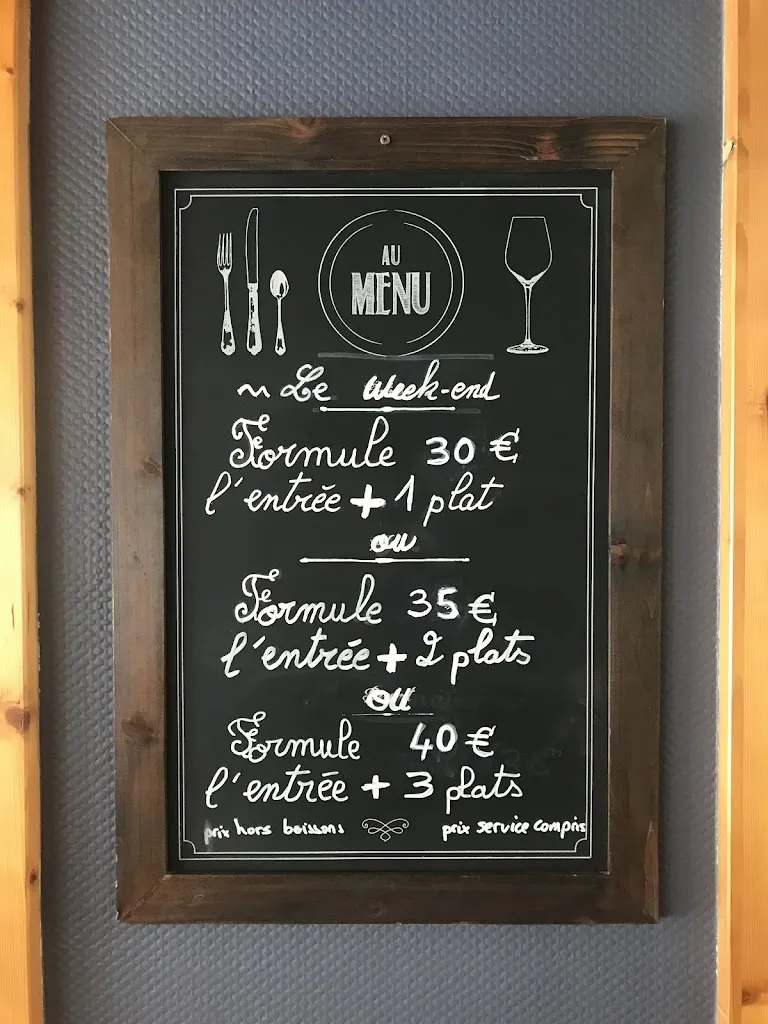 AU
MENU
~ Le Week-end
Formule 30 €
l'entrée + 1 plat
ou
Formule 35 €
l'entrée + 2 plats
ou
Formule 40 €
l'entrée + 3 plats
prix hors boissons prix service compris